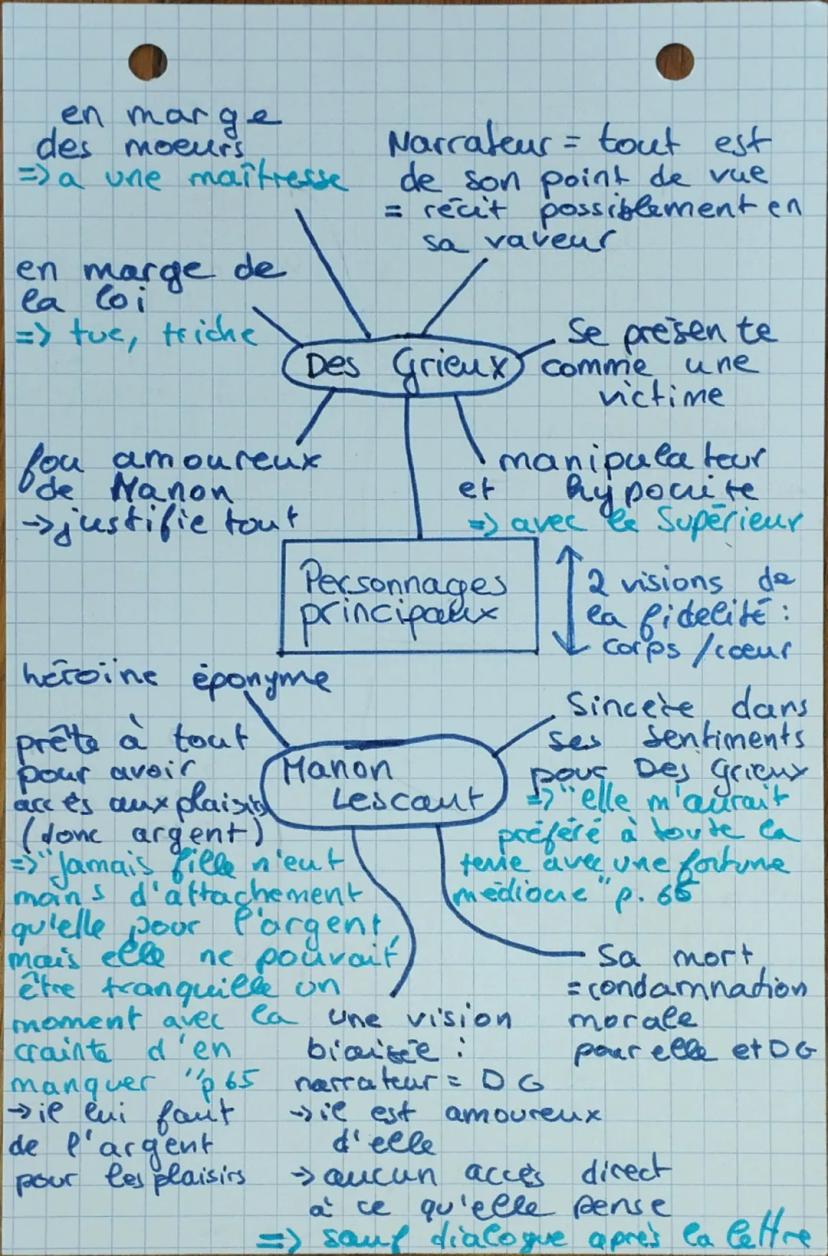 en marge
des moeurs
=> a une maîtresse
Narrateur = tout est
de son point de vue
= récit possiblement en
sa vaveur
en marge de
la loi
=> tue, triche
Des Grieux
Se présente
comme une
victime
fou amoureux
de Manon
-> justifie tout
manipulateur
et hypocrite
=> avec le Supérieur
Personnages
principaux
2 visions de
la fidelité :
corps / coeur
héroïne éponyme
Manon
Lescaut
Sincère dans
ses sentiments
pour Des Grieux
=> "elle m'aurait
préféré à toute la
terre avec une fortune
médiocre" p. 65
prête à tout
pour avoir
accès aux plaisirs
(donc argent)
=> "Jamais fille n'eut
moins d'attachement
qu'elle pour l'argent,
mais elle ne pouvait
être tranquille un
moment avec la
crainte d'en
manquer" p 65
-> il lui faut
de l'argent
pour les plaisirs
une vision
biaisée :
narrateur = DG
-> il est amoureux
d'elle
-> aucun accès direct
à ce qu'elle pense
=> sauf dialogue après la lettre
Sa mort
= condamnation
morale
pour elle et DG